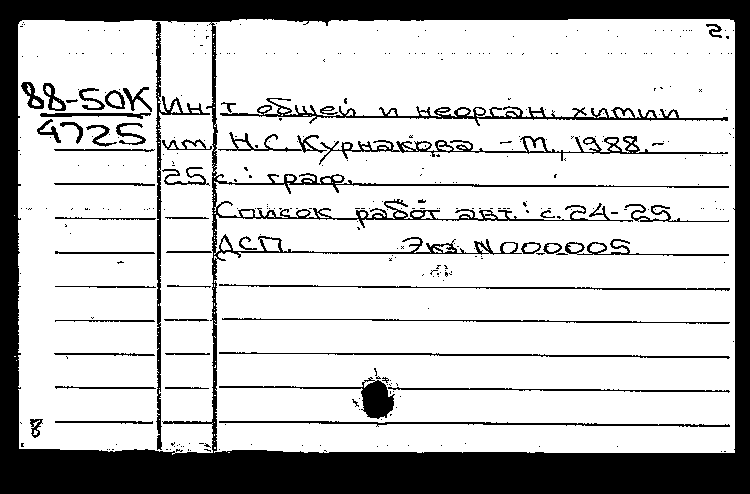 2.
88-50К Ин-т общей и неорган. химии
4725 им. Н.С. Курнакова. - М., 1988.-
25 с. : граф.
Список работ авт.: с. 24-25.
ДСП. Экз. N000005
8